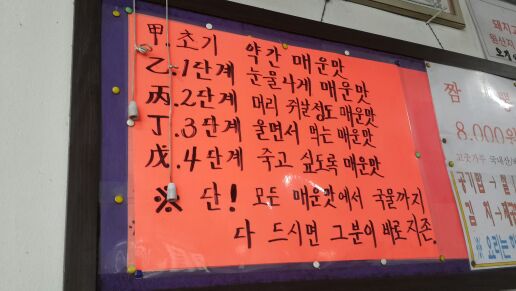 甲.초기 약간 매운맛
乙.1단계 눈물나게 매운맛
丙.2단계 머리 쥐날정도 매운맛
丁.3단계 울면서 먹는 매운맛
戊.4단계 죽고 싶도록 매운맛
※ 단! 모든 매운맛에서 국물까지
다 드시면 그분이 바로 지존.
돼지고
원산지
짬
8,000원
고춧가루 국내산